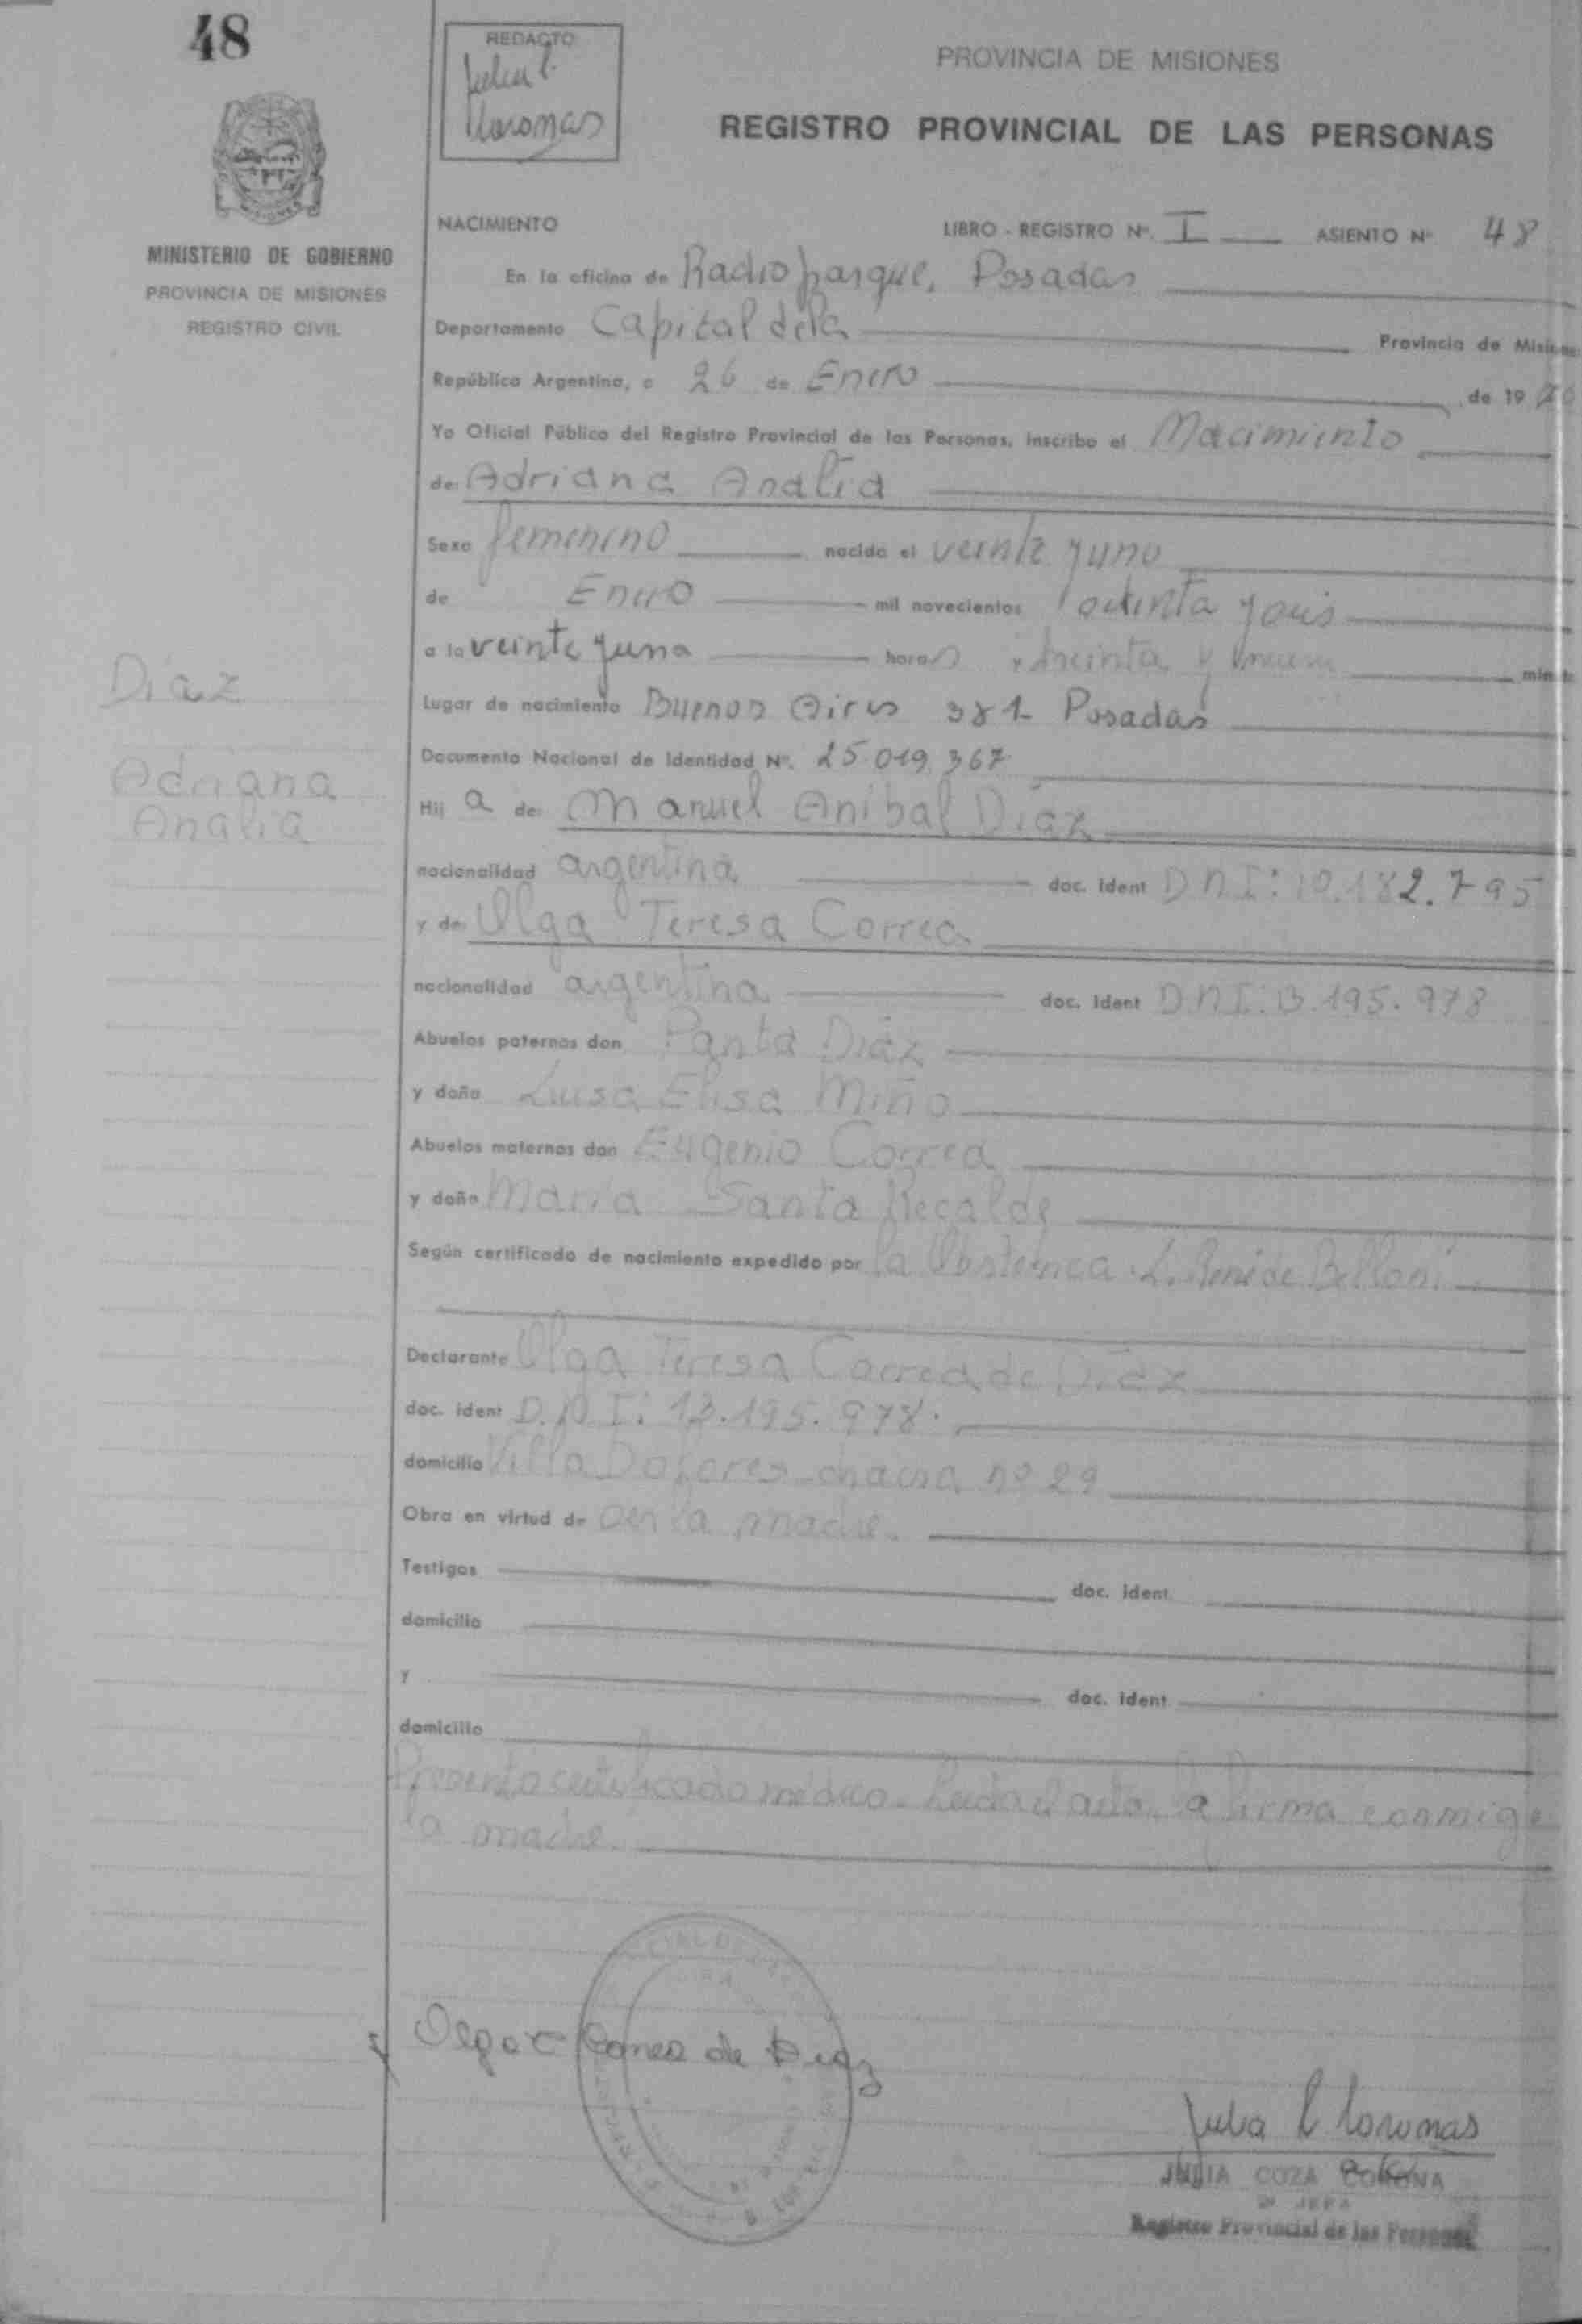 48
REDACTO
Julia
PROVINCIA DE MISIONES
REGISTRO PROVINCIAL DE LAS PERSONAS
MISIONES
MINISTERIO DE GOBIERNO
PROVINCIA DE MISIONES
REGISTRO CIVIL
NACIMIENTO LIBRO - REGISTRO Nº. I ASIENTO Nº 48
En la oficina de Radioparque, Posadas
Departamento Capital dela Provincia de Misiones
República Argentina, a 26 de Enero de 19
Yo Oficial Público del Registro Provincial de las Personas, inscribo el Nacimiento
de: Adriana Analía
Sexo femenino nacida el veinte y uno
de Enero mil novecientos
a la veinte y una horas treinta y min
Lugar de nacimiento Buenos Aires 381 Posadas
Díaz
Documento Nacional de Identidad Nº. 25.019.367
Adriana
Analía
Hij a de: Manuel Anibal Díaz
nacionalidad argentina doc. ident D N I: 10.182.795
y de: Olga Teresa Correa
nacionalidad argentina doc. ident D N I: 13.195.978
Abuelos paternos don Panta Díaz
y doña Luisa Elisa Miño
Abuelos maternos don Eugenio Correa
y doña María Santa Recalde
Según certificado de nacimiento expedido por la Obstetrica L. René de Belloni
Declarante Olga Teresa Correa de Díaz
doc. ident D.N I: 13.195.978.
domicilio Villa Dolores chacra nº 29
Obra en virtud de ser la madre.
Testigos doc. ident.
domicilio
y doc. ident
domicilio
Presento certificado médico. Leida el acta, la firma conmigo
la madre.
Olga T Correa de Diaz
Julia
JULIA COZA CORONA
JEFA
Registro Provincial de las Personas